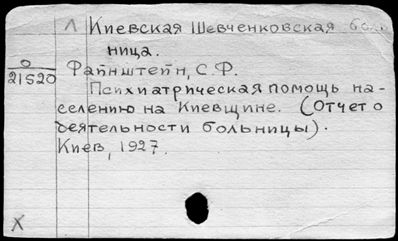 Л Киевская Шевченковская бол
ница.
О
21520
Файнштейн, С.Ф.
Психиатрическая помощь на-
селению на Киевщине. (Отчет о
деятельности больницы).
Киев, 1927.
X